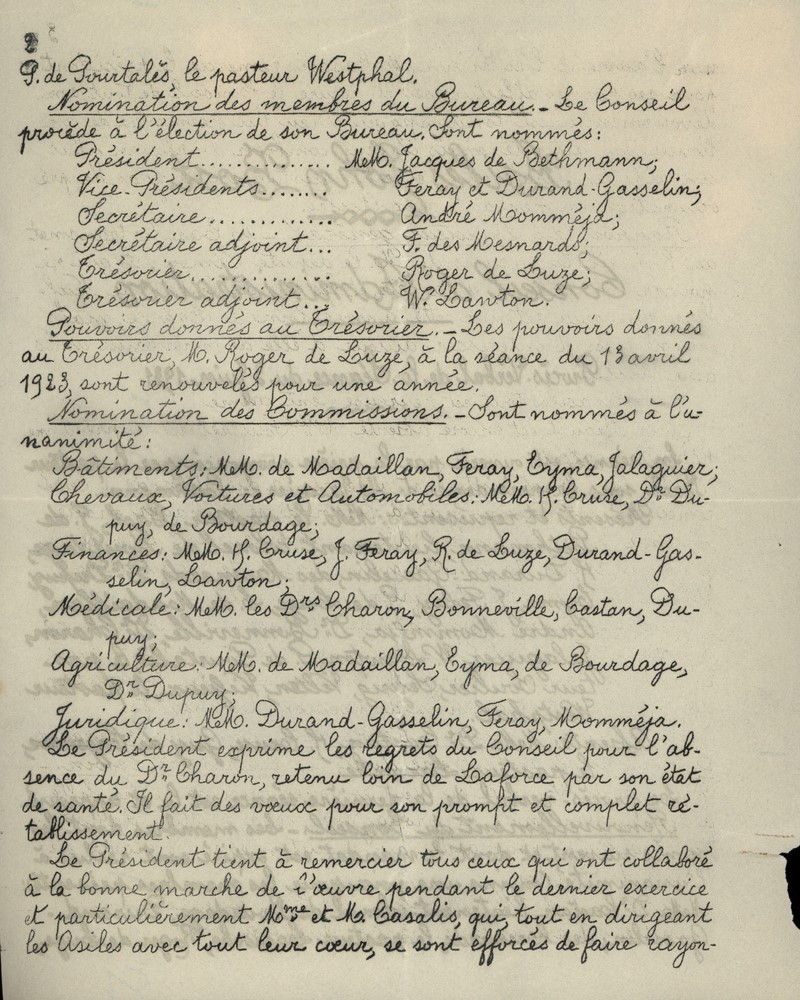 2
P. de Pourtalès, le pasteur Westphal.
Nomination des membres du Bureau. - Le Conseil
procède à l'élection de son Bureau. Sont nommés:
Président.............. MM. Jacques de Bethmann;
Vice-Présidents........ Feray et Durand-Gasselin;
Secrétaire............. André Momméja;
Secrétaire adjoint... F. des Mesnards;
Trésorier.............. Roger de Luze;
Trésorier adjoint... W. Lawton.
Pouvoirs donnés au Trésorier. - Les pouvoirs donnés
au Trésorier, M. Roger de Luze, à la séance du 13 avril
1923, sont renouvelés pour une année.
Nomination des Commissions. - Sont nommés à l'u-
nanimité:
Bâtiments: MM. de Madaillan, Feray, Eyma, Jalaguier;
Chevaux, Voitures et Automobiles: MM. H. Cruse, Dr Du-
puy, de Bourdage;
Finances: MM. H. Cruse, J. Feray, R. de Luze, Durand-Gas-
selin, Lawton;
Médicale: MM. les Drs Charon, Bonneville, Castan, Du-
puy;
Agriculture: MM. de Madaillan, Eyma, de Bourdage,
Dr Dupuy;
Juridique: MM. Durand-Gasselin, Feray, Momméja.
Le Président exprime les regrets du Conseil pour l'ab-
sence du Dr Charon, retenu loin de Laforce par son état
de santé. Il fait des vœux pour son prompt et complet ré-
tablissement.
Le Président tient à remercier tous ceux qui ont collaboré
à la bonne marche de l'œuvre pendant le dernier exercice
et particulièrement Mme et M. Casalis, qui, tout en dirigeant
les Asiles avec tout leur cœur, se sont efforcés de faire rayon-